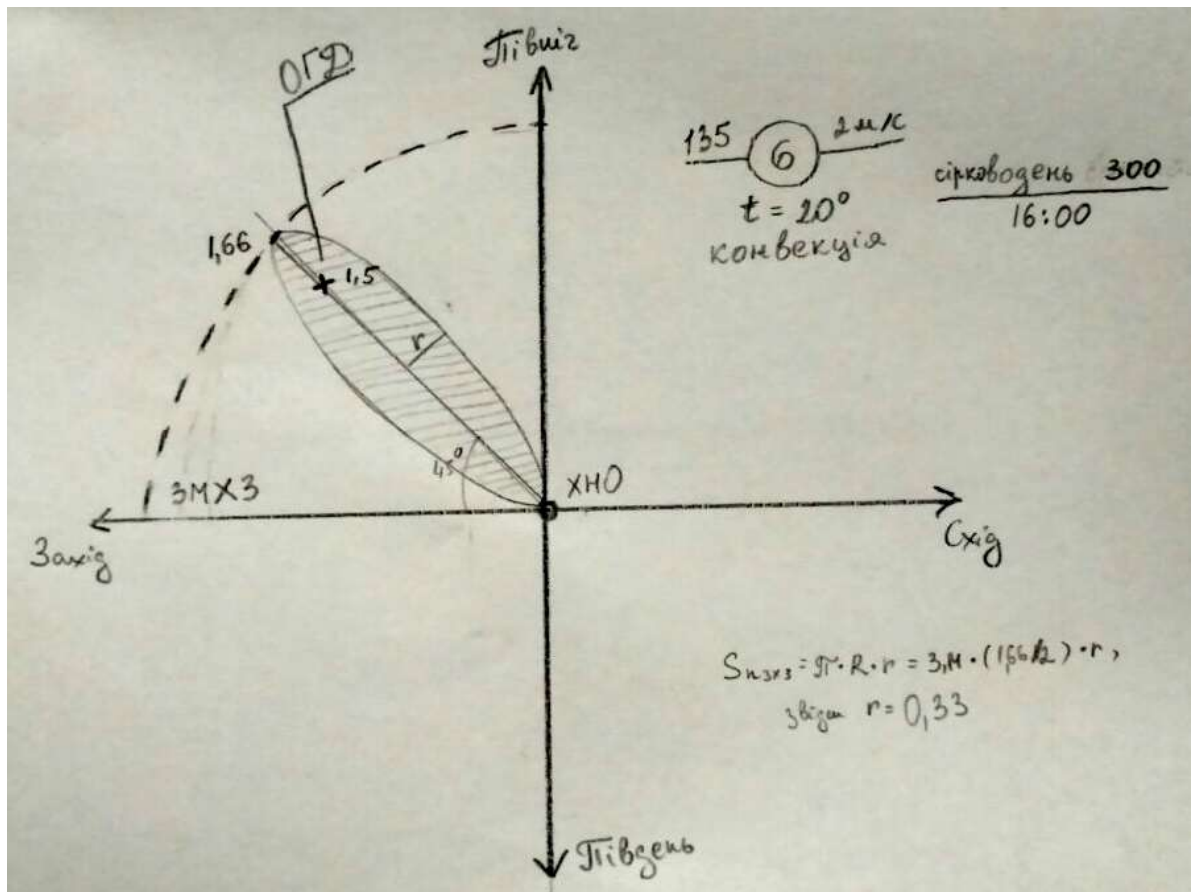 Північ
ОГД
135 6 2 м/с
t = 20°
конвекція
сірководень 300
16:00
1,66
1,5
r
45°
ЗМХЗ
ХНО
Захід
Схід
Sпзхз = π · R · r = 3,14 · (1,66/2) · r,
звідки r = 0,33
Південь